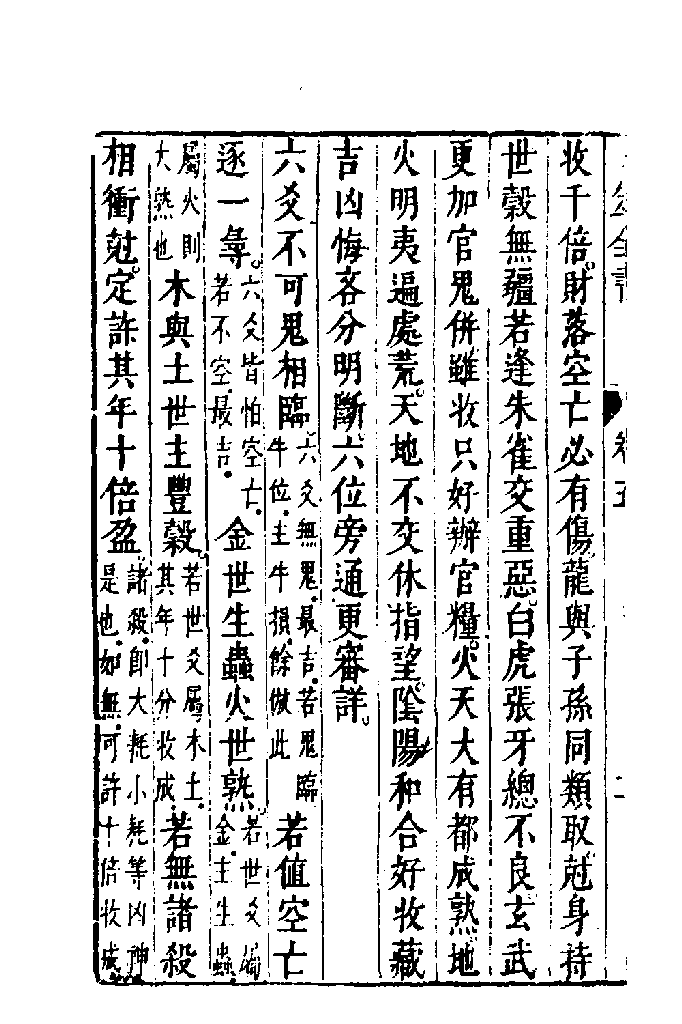 收千倍財落空亡必有傷龍與子孫同類取尅身持
世穀無疆若逢朱雀交重惡白虎張牙總不良玄武
更加官鬼併雖收只好辦官糧火天大有都成熟地
火明夷遍處荒天地不交休指望陰陽和合好收藏
吉凶悔吝分明斷六位旁通更審詳
六爻不可鬼相臨六爻無鬼最吉若鬼臨牛位主牛損餘倣此若值空亡
逐一彖六爻皆怕空亡若不空最吉金世生蟲火世熟若世爻屬金主生蟲
屬火則大熟也木與土世主豐穀若世爻屬木土其年十分收成若無諸殺
相衝尅定許其年十倍盈諸殺即大耗小耗等凶神是也如無可許十倍收成